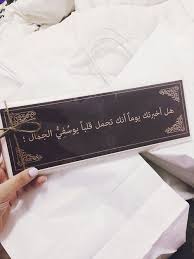 هل أخبرتك يوماً أنك تحمل قلباً يوسُفيُّ الجمال ؛